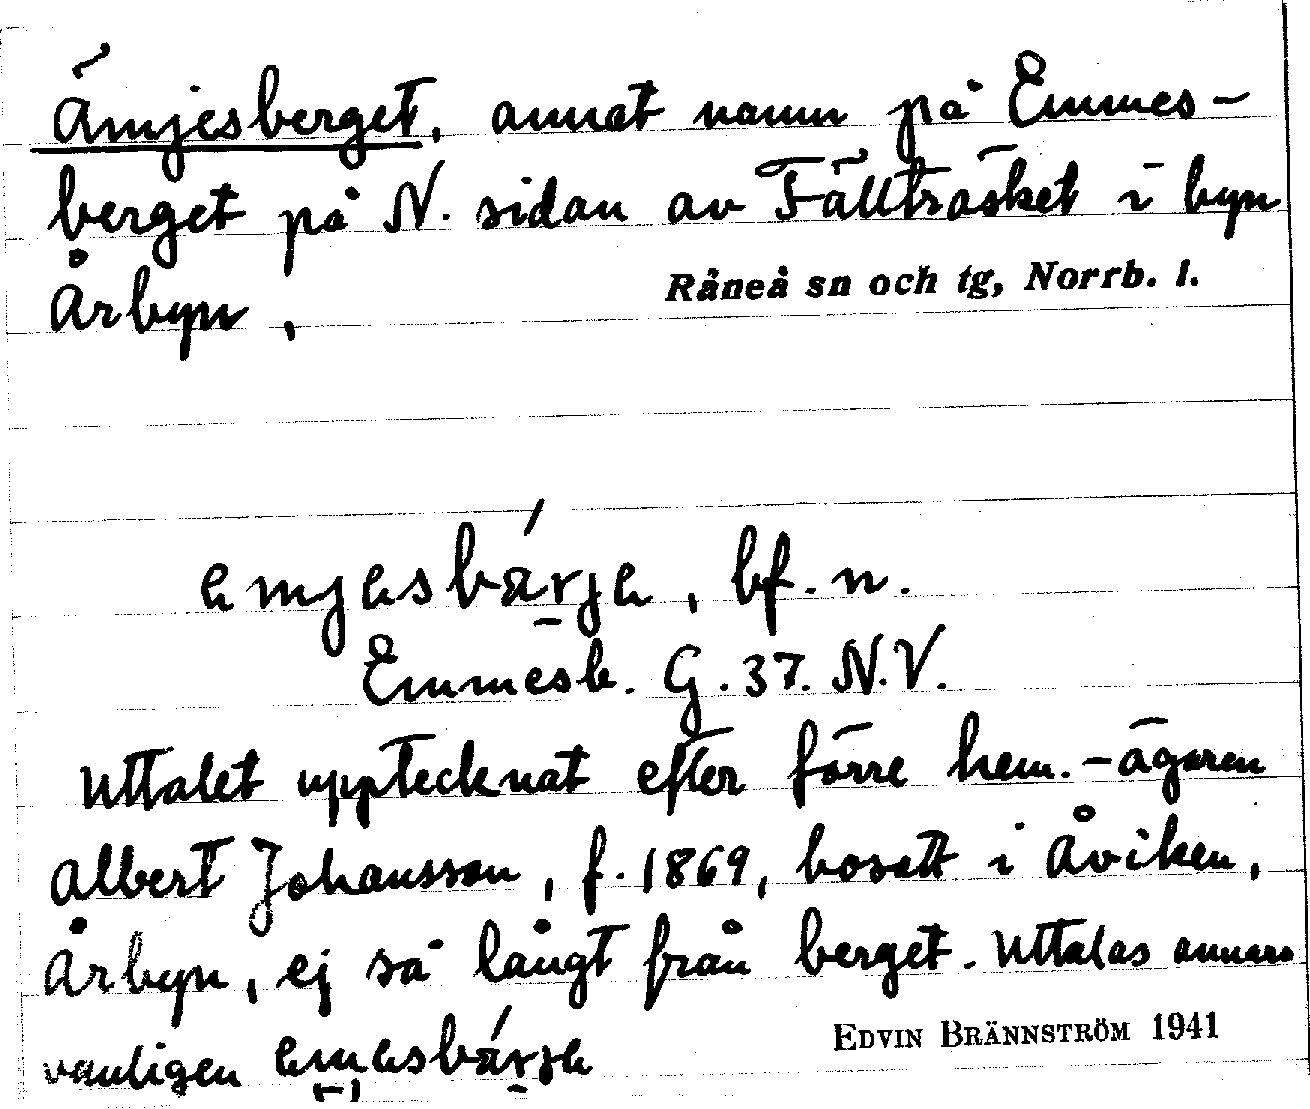 Ämjesberget, annat namn på Emmes-
berget på N. sidan av Fällträsket i byn
Årbyn,
Råneå sn och tg, Norrb. l.
emjesbárje, bf. n.
Emmesb. G. 37. N.V.
Uttalet upptecknat efter förre hem.-ägaren
Albert Johansson, f. 1869, bosatt i Åviken,
Årbyn, ej så långt från berget. Uttalas annars
vanligen emesbárje
EDVIN BRÄNNSTRÖM 1941